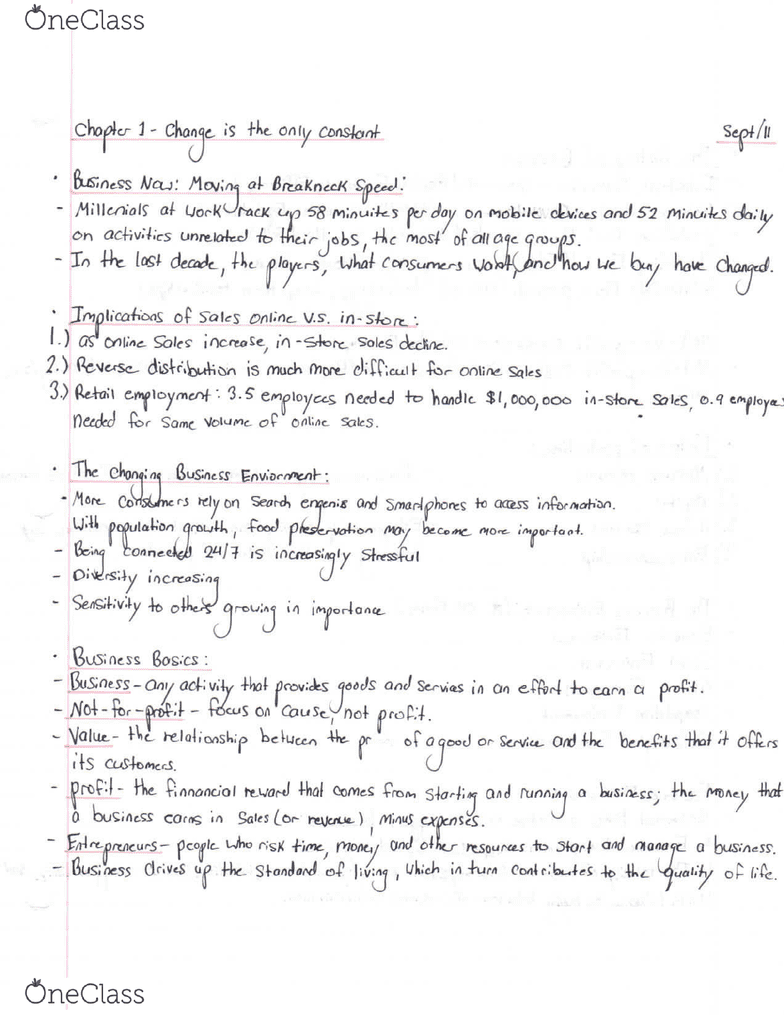 OneClass
Chapter 1 - Change is the only constant Sept/11
• Business Now: Moving at Breakneck Speed:
- Millenials at work rack up 58 minuites per day on mobile devices and 52 minuites daily
on activities unrelated to their jobs, the most of all age groups.
- In the last decade, the players, what consumers want, and how we buy have changed.
• Implications of Sales online V.S. in-store:
1.) as online sales increase, in-store sales decline.
2.) Reverse distribution is much more difficult for online sales
3.) Retail employment: 3.5 employees needed to handle $1,000,000 in-store sales, 0.9 employees
needed for same volume of online sales.
• The changing Business Enviorment:
- More consumers rely on search engenis and smartphones to access information.
With population growth, food preservation may become more important.
- Being connected 24/7 is increasingly stressful
- Diversity increasing
- Sensitivity to others growing in importance
• Business Basics:
- Business - any activity that provides goods and servies in an effort to earn a profit.
- Not-for-profit - focus on cause, not profit.
- Value - the relationship between the pr of a good or service and the benefits that it offers
its customers.
- profit - the finnancial reward that comes from starting and running a business; the money that
a business earns in sales (or revenue), minus expenses.
- Entrepreneurs - people who risk time, money and other resources to start and manage a business.
- Business drives up the standard of living, which in turn contributes to the quality of life.
OneClass